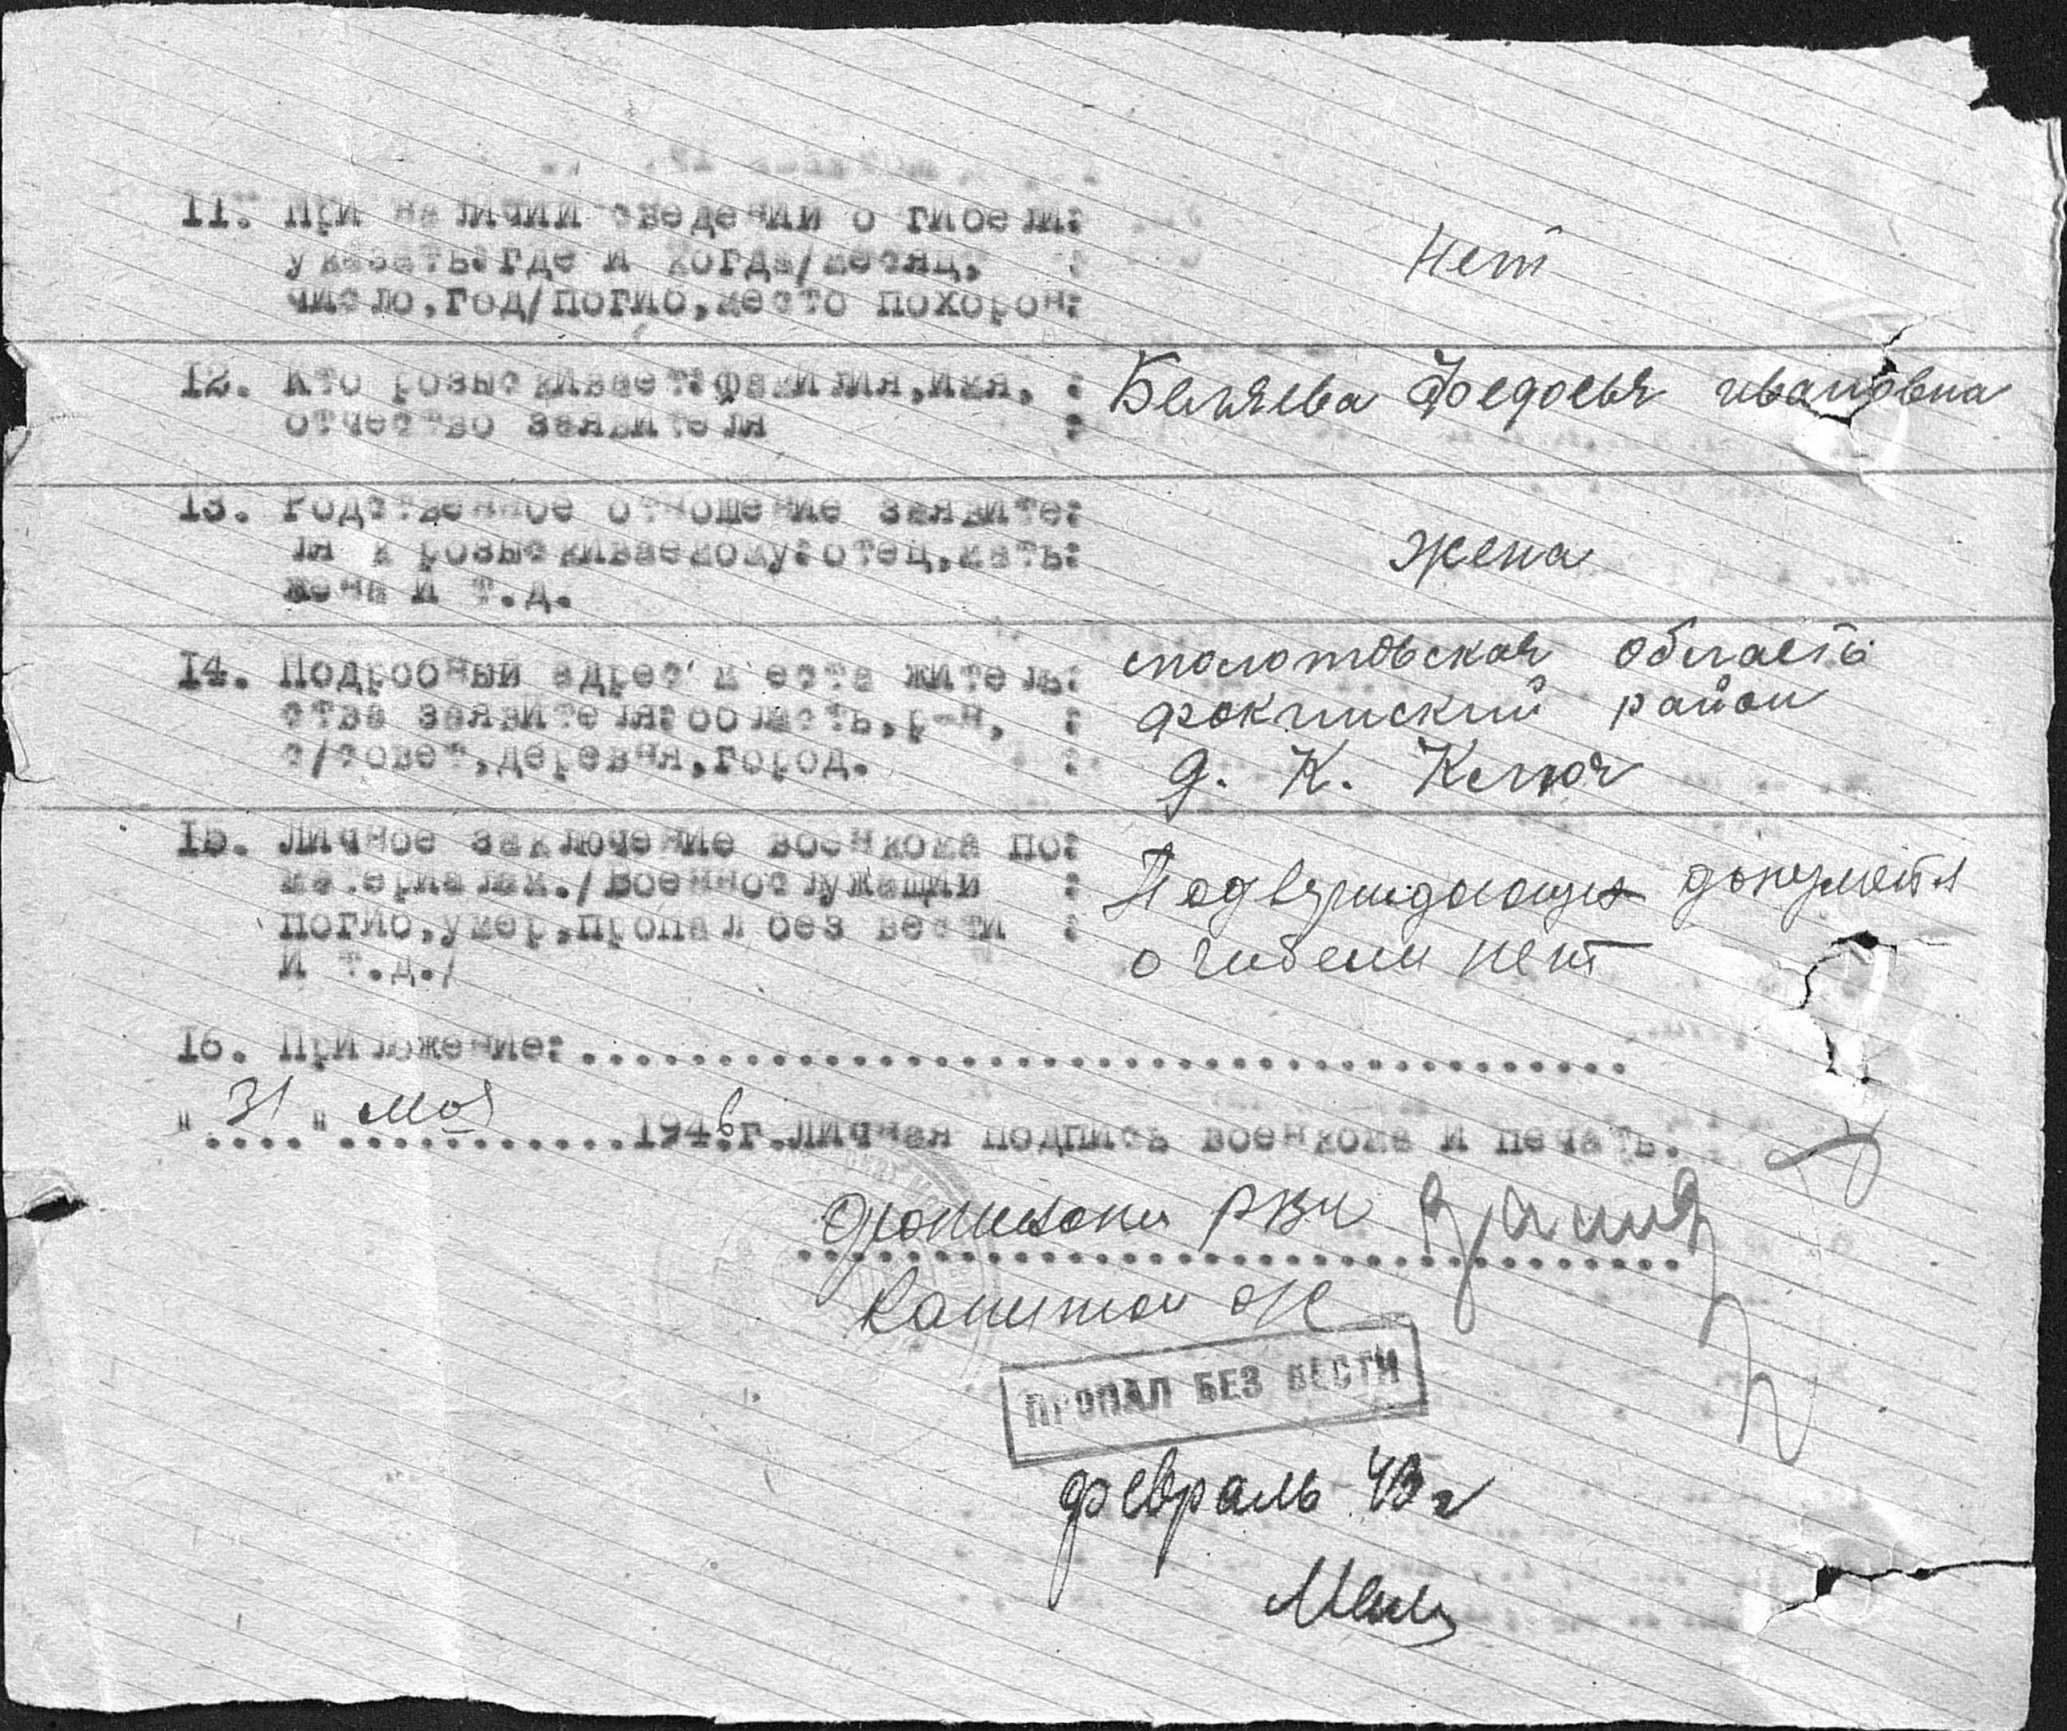 11. При наличии сведений о гибели: Нет
указать: где и когда/месяц,
число, год/погиб, место похорон:
12. Кто розыскивает: фамилия, имя, : Беляева Федосья ивановна
отчество заявителя :
13. Родственное отношение заявите:
ля к розыскиваемому: отец, мать: жена
жена и т.д.
14. Подробный адрес места житель: молотовская область
ства заявителя: область, р-н, : фокинский район
с/совет, деревня, город. : д. К. Ключ
15. Личное заключение военкома по:
материалам./Военнослужащий : Подверждающих документа
погиб, умер, пропал без вести : о гибели нет
и т.д./
16. Приложение:..........................................
"31" мая 1946г. Личная подпись военкома и печать.
РВК
Капитан
ПРОПАЛ БЕЗ ВЕСТИ
февраль 43 г